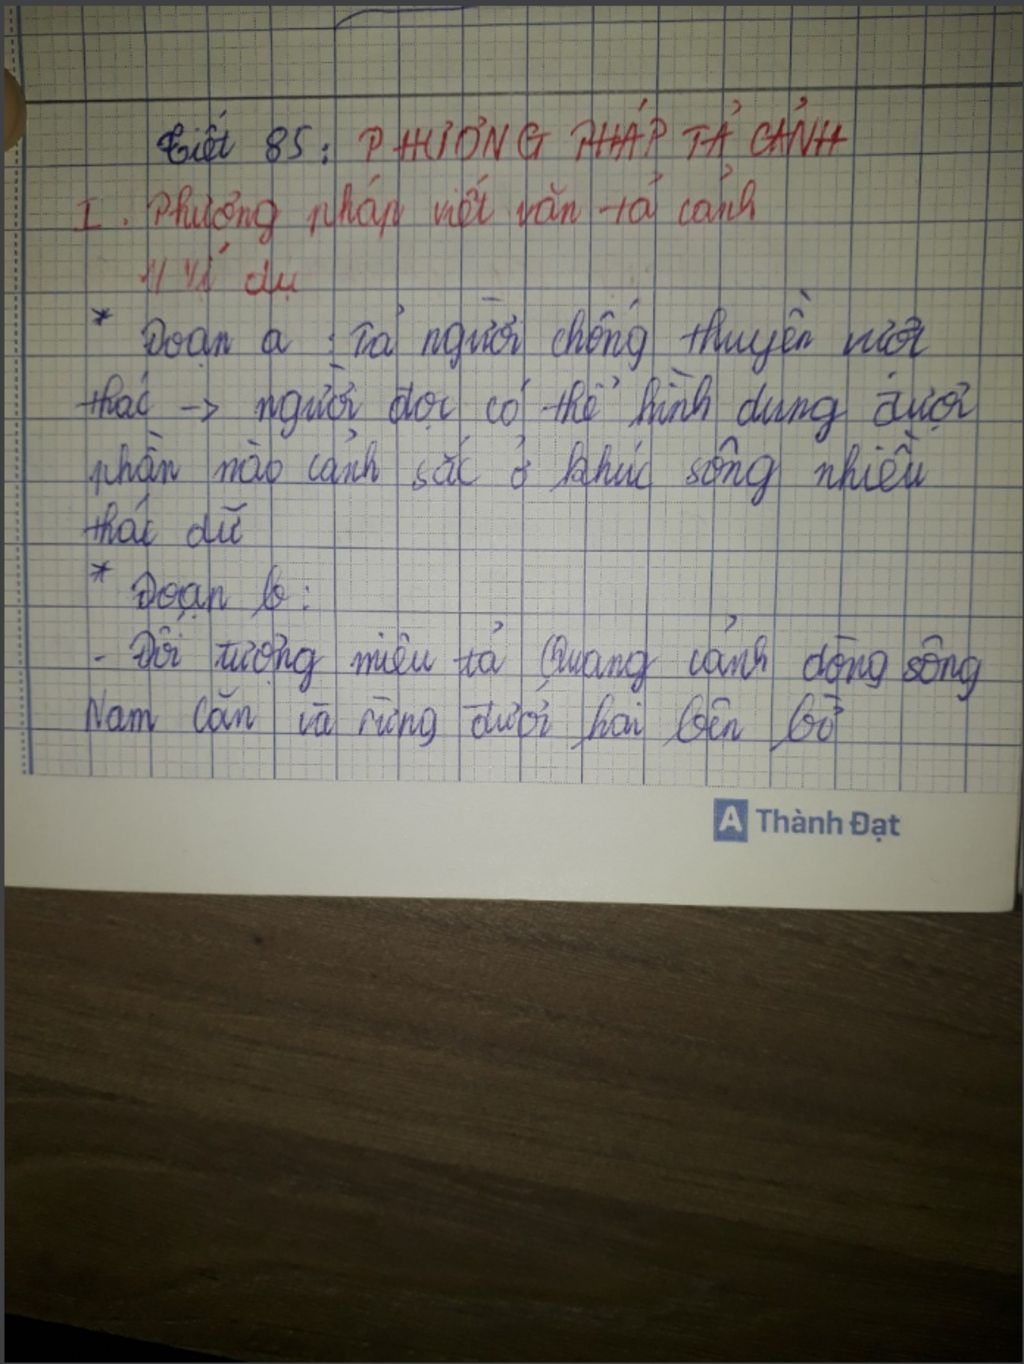 Tiết 85: PHƯƠNG PHÁP TẢ CẢNH
I. Phương pháp viết văn tả cảnh
1/ Ví dụ
* Đoạn a: Tả người chống thuyền vượt
thác -> người đọc có thể hình dung được
phần nào cảnh sắc ở khúc sông nhiều
thác dữ
* Đoạn b:
- Đối tượng miêu tả Quang cảnh dòng sông
Năm Căn và rừng đước hai bên bờ
A Thành Đạt